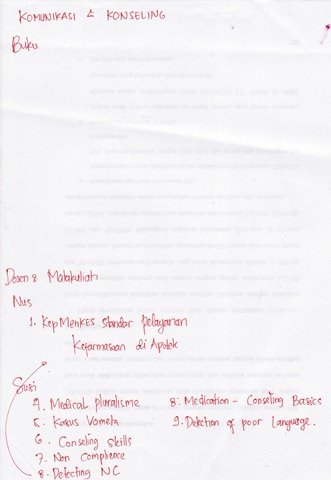 KOMUNIKASI & KONSELING
Buku
Dosen & Matakuliah
Nus
1. KepMenkes Standar Pelayanan
Kefarmasian di Apotek
Susi
4. Medical pluralisme
5. Kasus Vometa
6. Conseling Skills
7. Non Complience
8. Detecting NC
8. Medication - Conseling Basics
9. Detection of poor Language.